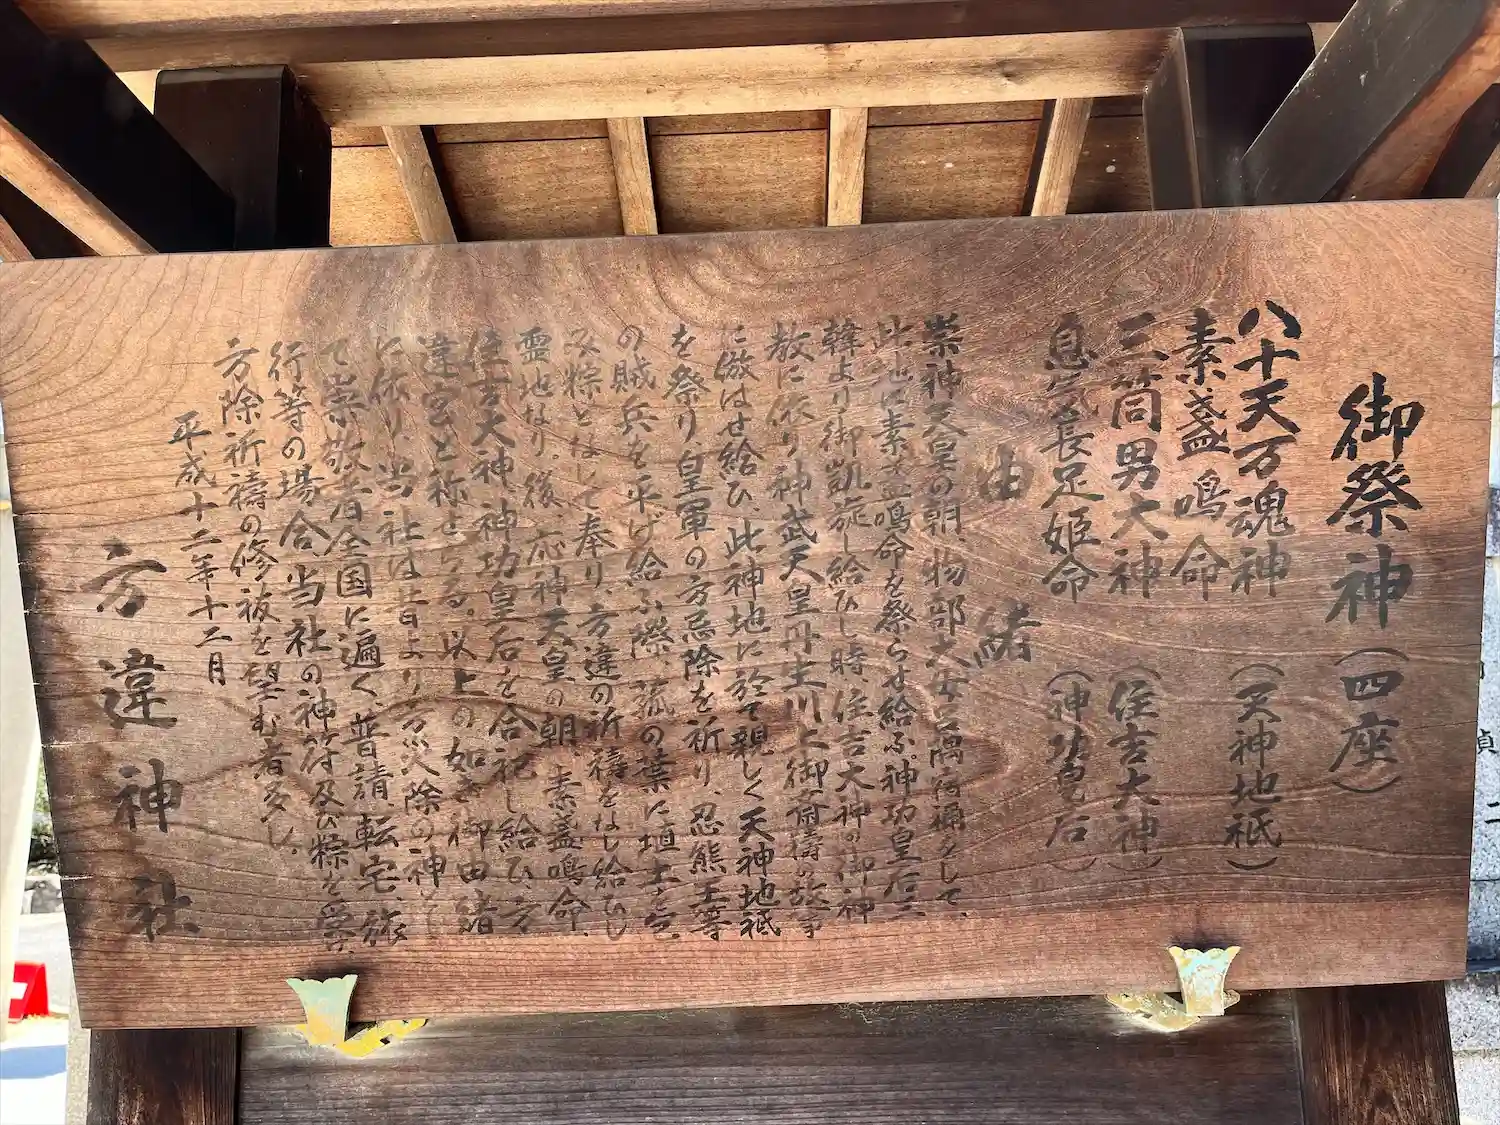 御祭神（四座）
八十天万魂神（天神地祇）
素盞鳴命
三筒男大神（住吉大神）
息気長足姫命（神功皇后）
由緒
崇神天皇の朝、物部大母呂隅宿禰をして、
此地に素盞鳴命を祭らせ給ふ。神功皇后三
韓より御凱旋し給ひし時住吉大神の御神
教に依り神武天皇丹生川上御斎祷の故事
に倣はせ給ひ、此神地に於て親しく天神地祇
を祭り皇軍の方忌除を祈り、忍熊王等
の賊兵を平げ給ふ際、菰の葉に埴土を包
み粽となして奉り、方違の祈祷をなし給ひし
霊地なり。後、応神天皇の朝、素盞鳴命、
住吉大神、神功皇后を合祀し給ひ、方
違宮と称せらる。以上の如き御由緒
に依り、当社は昔より方災除の神とし
て崇敬者全国に遍く、普請、転宅、旅
行等の場合、当社の神符及び粽を受け、
方除祈祷の修祓を望む者多し。
平成十二年十二月
方違神社